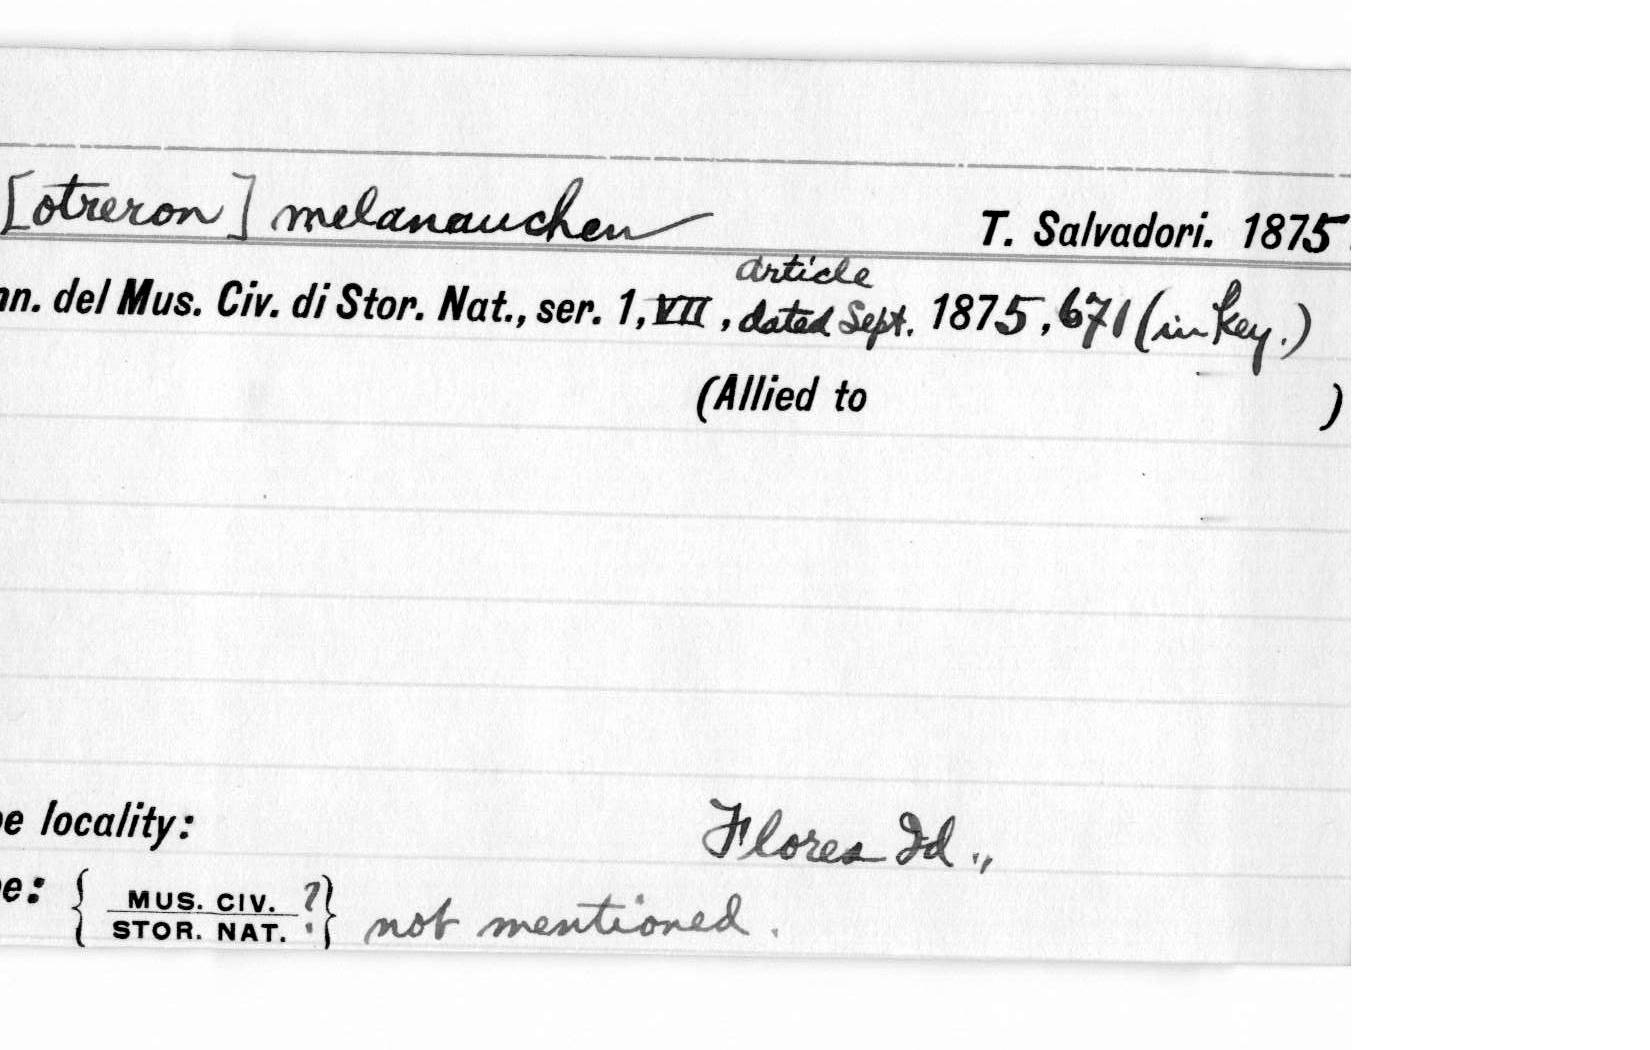 [otreron] melanauchen T. Salvadori. 1875
article
nn. del Mus. Civ. di Stor. Nat., ser. 1, VII, dated Sept. 1875, 671 (in key.)
(Allied to )
e locality:
Flores Id.,
e: { MUS. CIV. ? } not mentioned.
STOR. NAT.